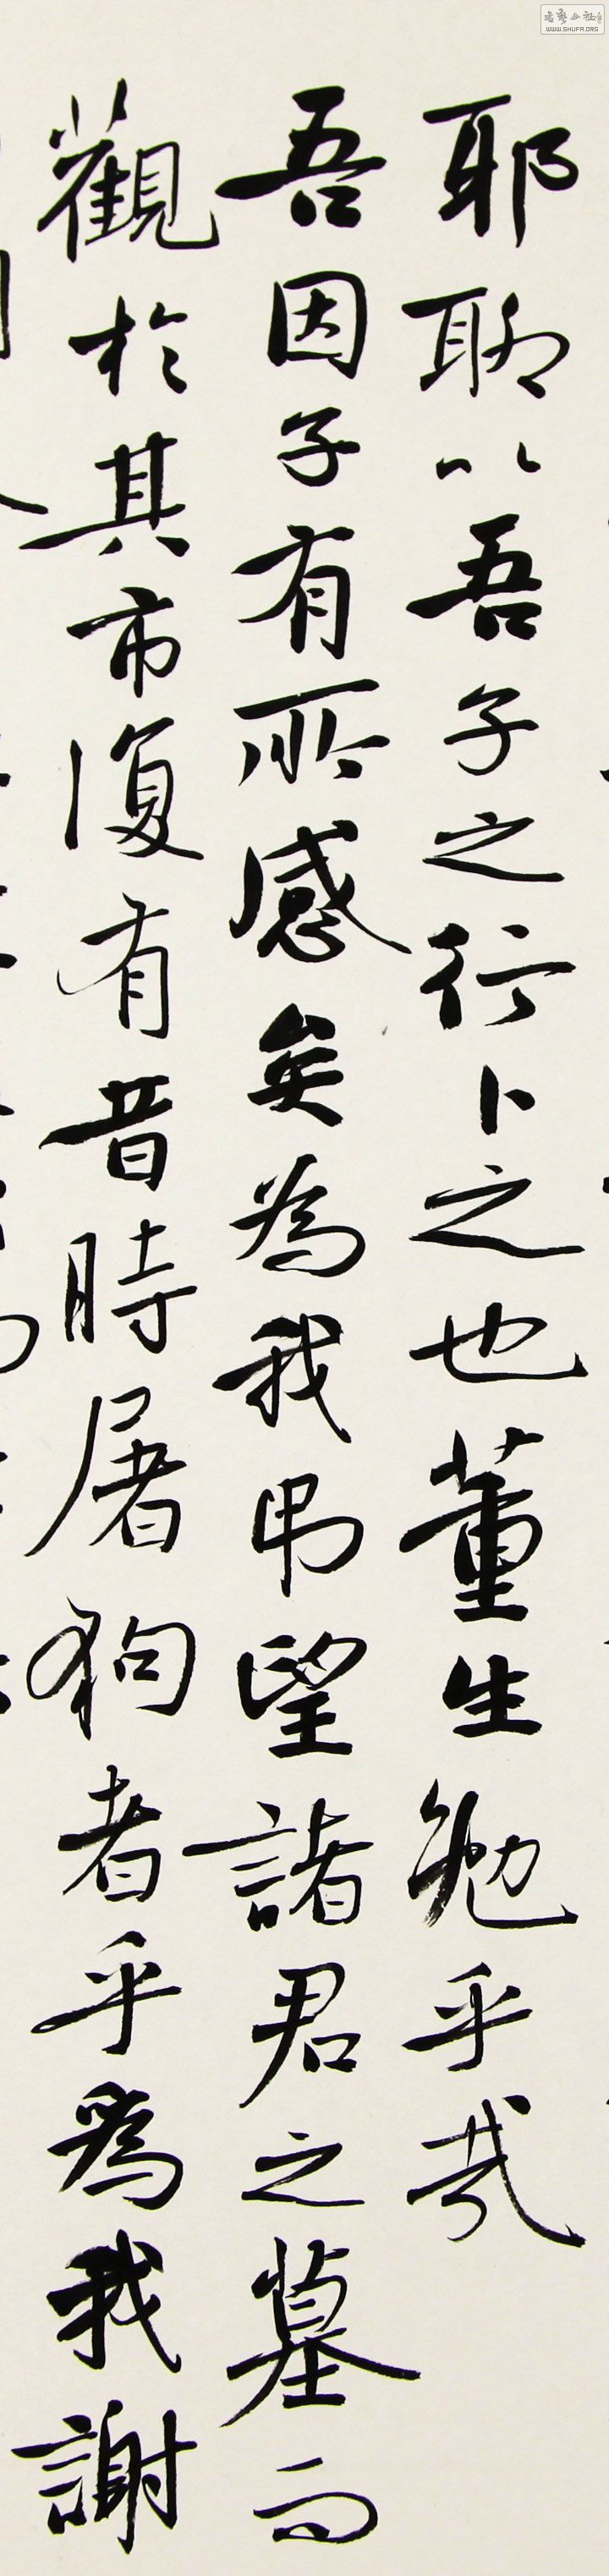 耶聊以吾子之行卜之也董生勉乎哉
吾因子有所感矣為我弔望諸君之墓而
觀於其市復有昔時屠狗者乎為我謝
WWW.SHUFA.ORG